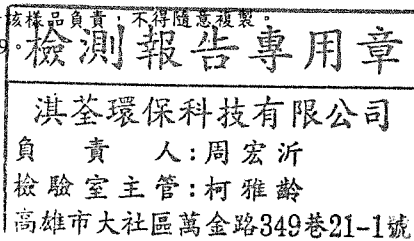 該樣品負責，不得隨意複製。
9。
檢測報告專用章
淇荃環保科技有限公司
負責人：周宏沂
檢驗室主管：柯雅齡
高雄市大社區萬金路349巷21-1號